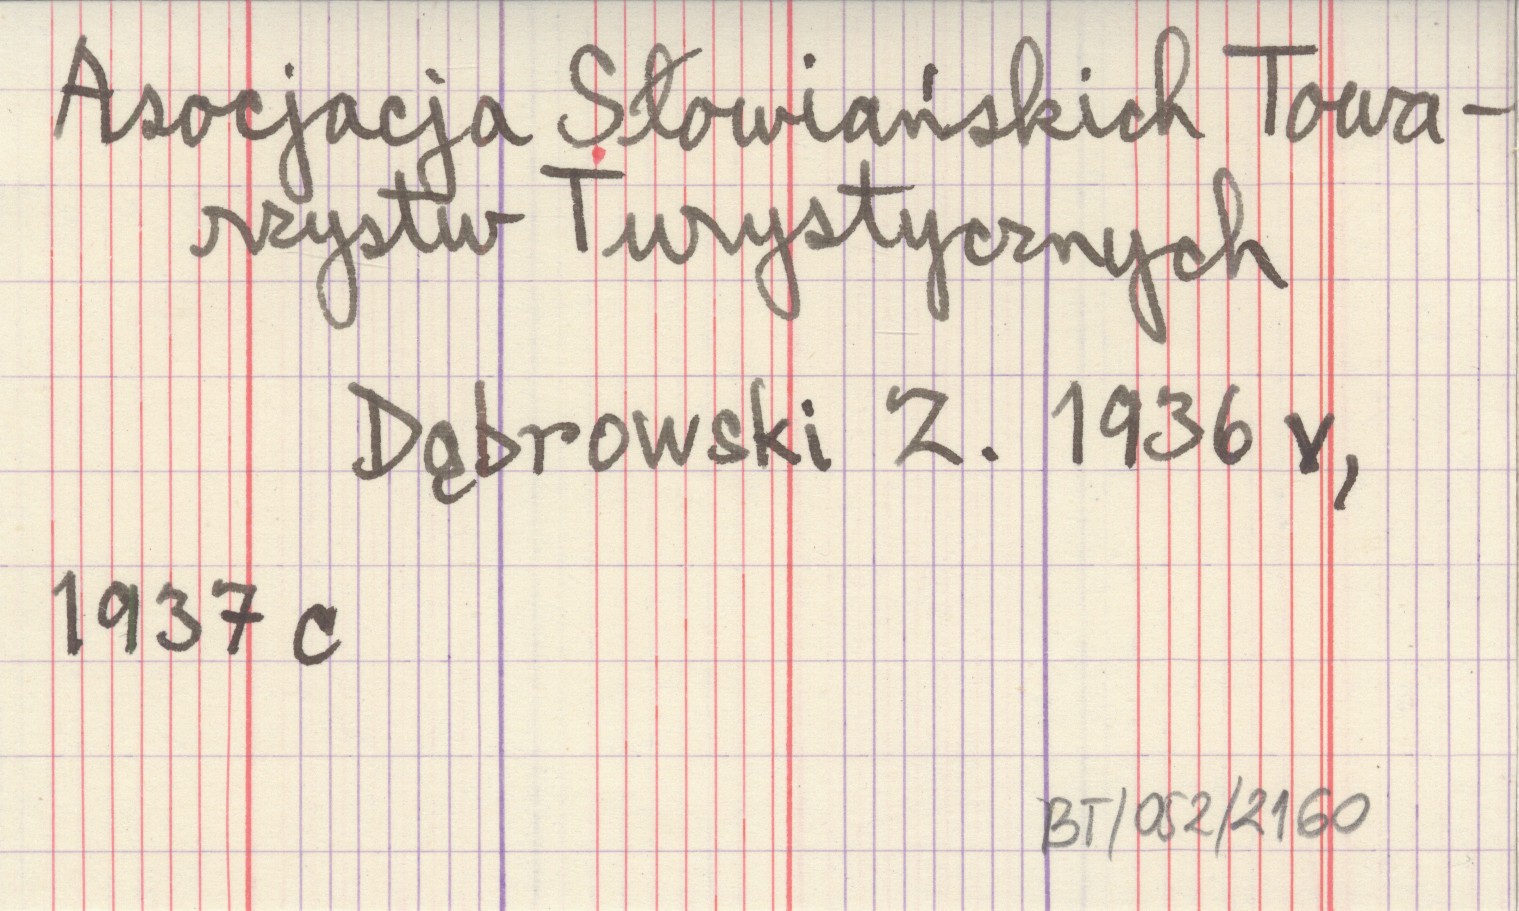 Asocjacja Słowiańskich Towa-
rzystw Turystycznych
Dąbrowski Z. 1936 v,
1937 c
BT/052/2160